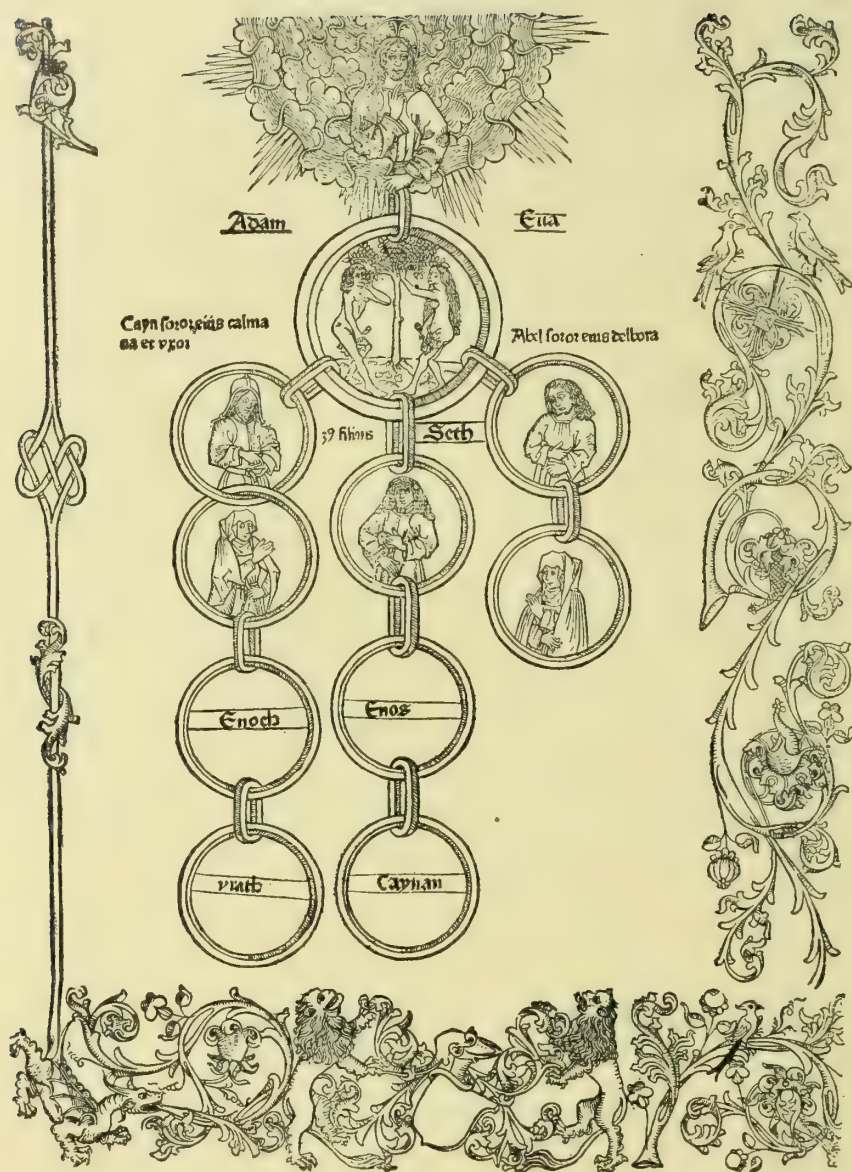 Adam
Eua
Cayn soror eius calma
na et vxor
Abel soror eius delbora
39 filius
Seth
Enoch
Enos
yrath
Caynan